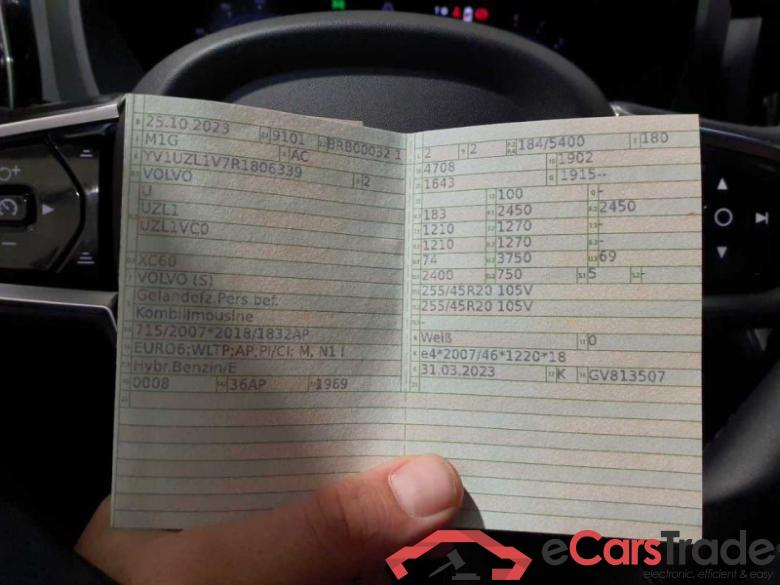 25.10 2023 9101 BRB00032 1
M1G AC
YV1UZL1V7R1806339
VOLVO 2
U
UZL1
UZL1VC0
XC60
VOLVO (S)
Geländefz.Pers.bef.
Kombilimousine
715/2007*2018/1832AP
EURO6;WLTP;AP,PI/CI; M, N1 I
Hybr.Benzin/E
0008 36AP 1969
2 2 184/5400 180
4708 1902
1643 1915--
100 -
183 2450 2450
1210 1270 -
1210 1270 -
74 3750 69
2400 750 5 -
255/45R20 105V
255/45R20 105V
-
Weiß 0
e4*2007/46*1220*18
31.03.2023 K GV813507
eCarsTrade
electronic, efficient & easy